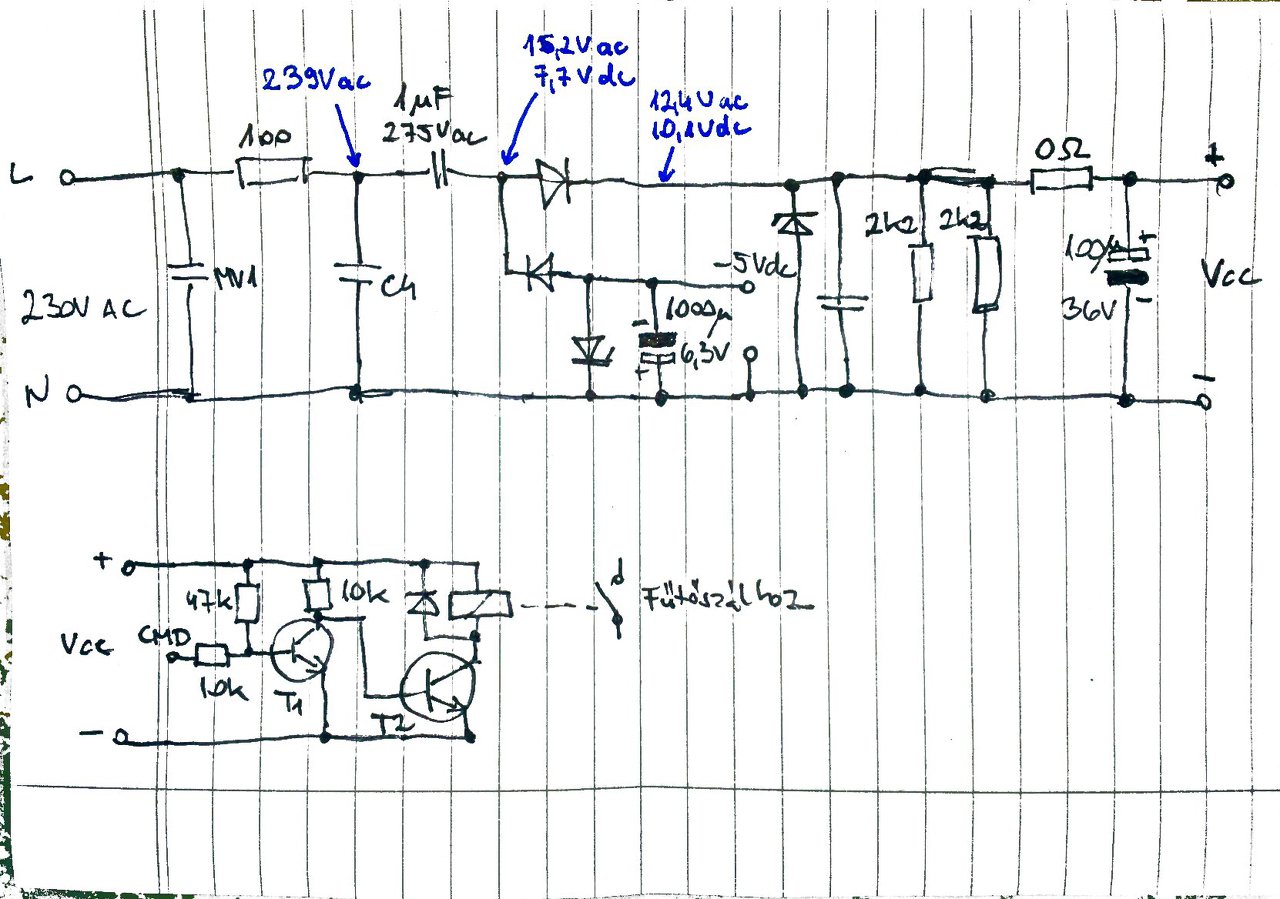 15,2Vac
7,7Vdc
239Vac
1µF
275Vac
12,4Vac
10,1Vdc
100
0Ω
L
+
2k2
2k2
-5Vdc
100µ
+
MV1
C4
230V AC
1000µ
-
6,3V
+
36V
-
Vcc
N
-
+
47k
10k
Fűtőszálhoz
Vcc
CMD
10k
T1
T2
-